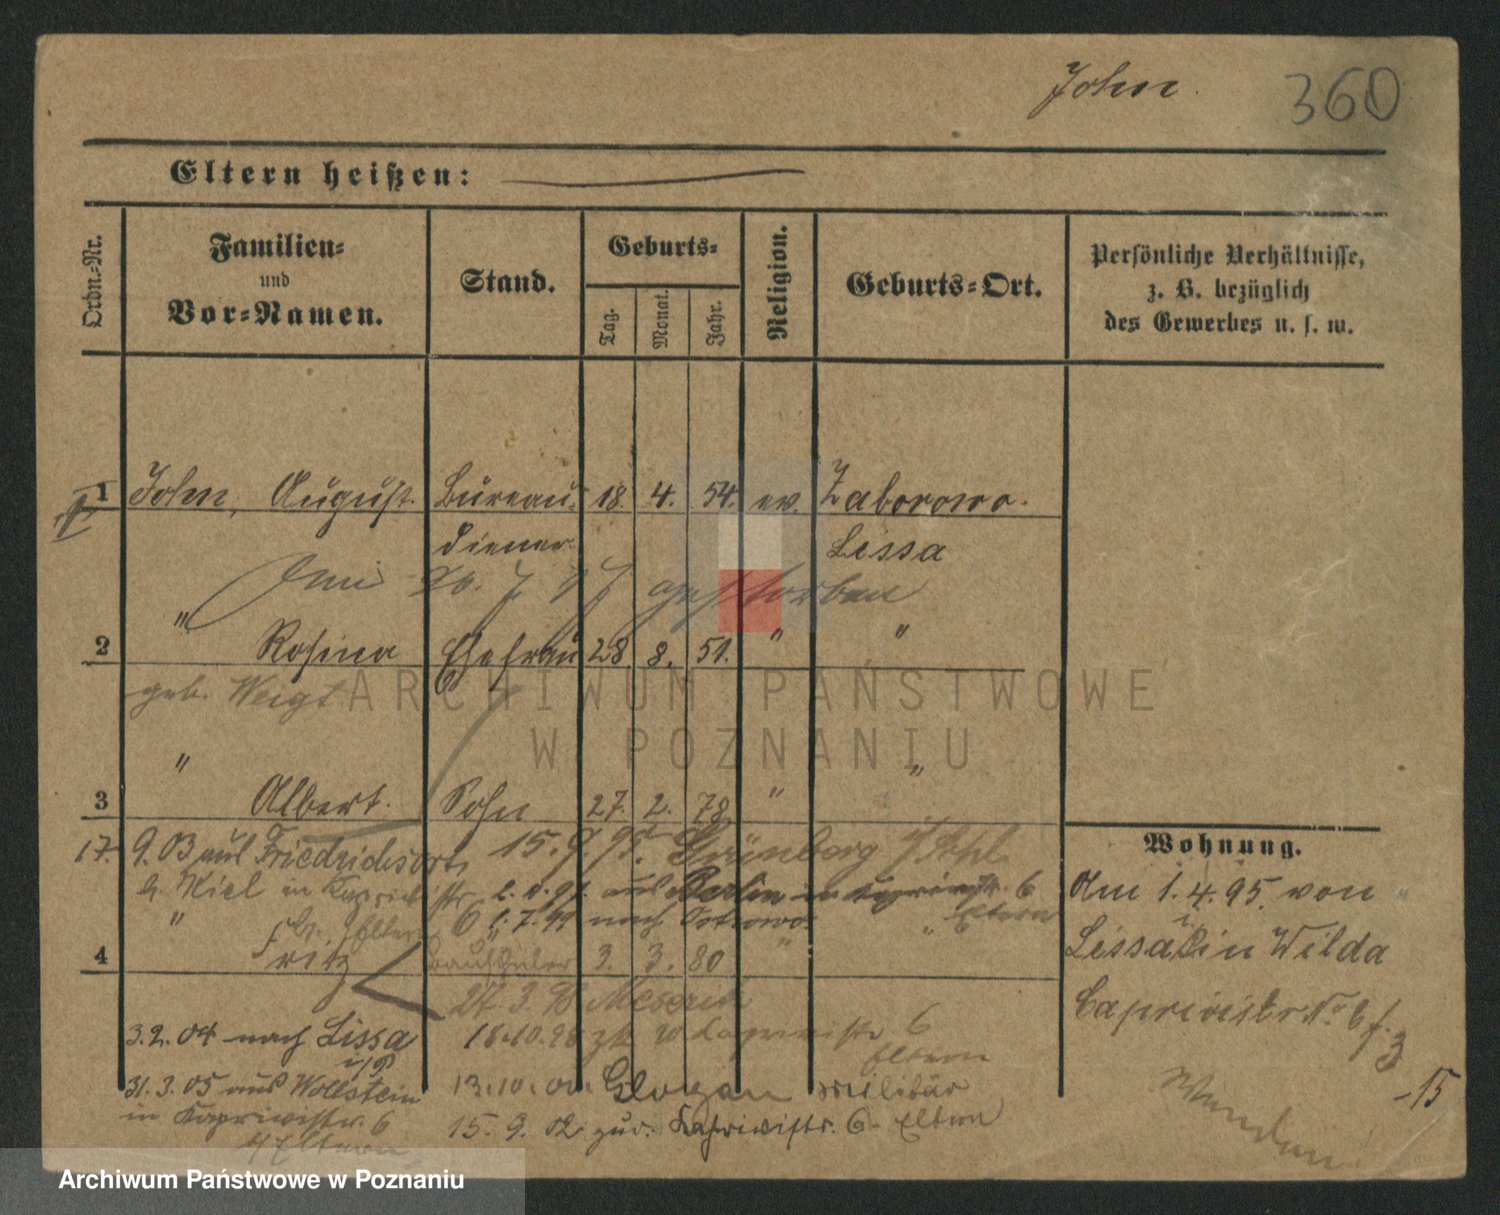 John.
360
Eltern heißen:
Ordn.-Nr.
Familien-
und
Vor-Namen.
Stand.
Geburts-
Tag.
Monat.
Jahr.
Religion.
Geburts-Ort.
Persönliche Verhältnisse,
z. B. bezüglich
des Gewerbes u. s. w.
1 John, August. Bureau- 18. 4. 54. ev. Zaborowo.
diener. Lissa
Am 26. 7. gestorben
2 " Rosina Ehefrau 28. 8. 51. " "
geb. Weigt
3 " Albert. Sohn 27. 2. 78. " "
17. 9. 03 aus Friedrichsort 15. 9. 95. Grünberg i/Schl.
b. Kiel in aus Berlin in 6
6 1. 7. 99 nach Ostrowo. Eltern
4 " Fritz Bauschüler 3. 3. 80 " "
3. 98 Meseritz
3. 2. 04 nach Lissa 18. 10. 98 zk. Caprivistr 6
i/P Eltern
31. 3. 05 aus Wollstein 13. 10. 00. Glogau Militär
in Kaprivistr. 6 15. 9. 02. zur. Kaprivistr. 6. Eltern
b/ Eltern
Wohnung.
Am 1. 4. 95. von
Lissa i/P in Wilda
Caprivistr No 6 f. 3
-15
ARCHIWUM PAŃSTWOWE
W POZNANIU
Archiwum Państwowe w Poznaniu